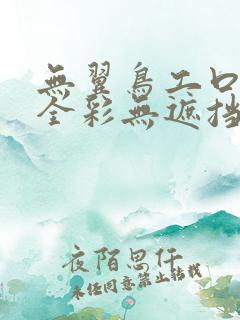 無翼鳥工口
全彩無遮挡
夜陌思仟
未经同意禁止转载